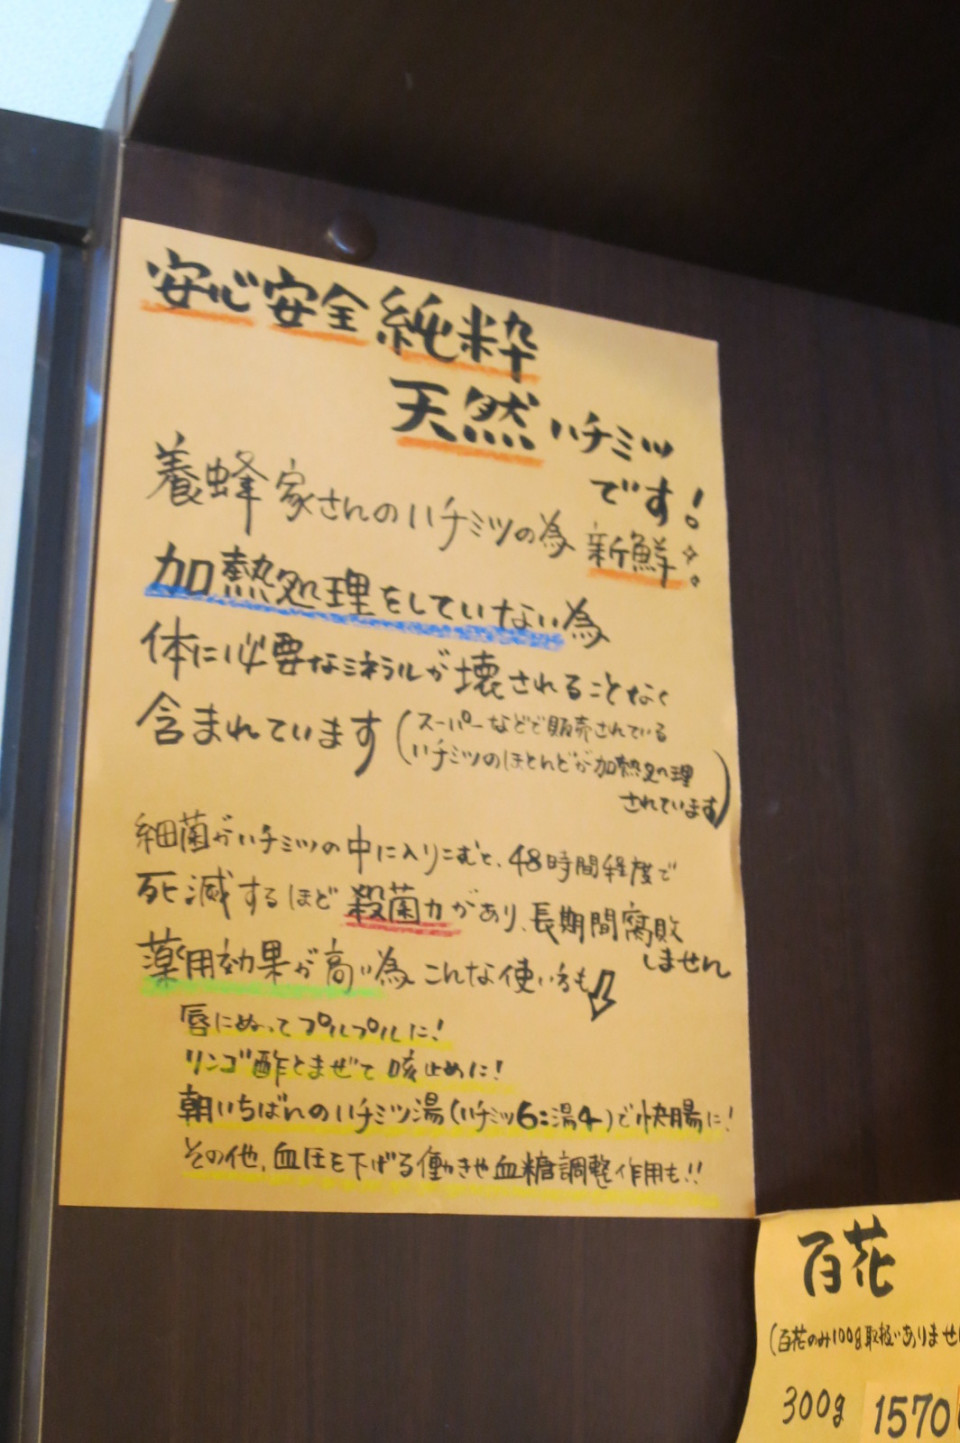 安心安全純粋
天然ハチミツ
です!
養蜂家さんのハチミツの為 新鮮
加熱処理をしていない為
体に必要なミネラルが壊されることなく
含まれています(スーパーなどで販売されている
ハチミツのほとんどが加熱処理
されています)
細菌がハチミツの中に入りこむと、48時間程度で
死滅するほど殺菌力があり、長期間腐敗
しません
薬用効果が高い為 こんな使い方も
唇にぬってプルプルに!
リンゴ酢とまぜて咳止めに!
朝いちばんのハチミツ湯(ハチミツ6:湯4)で快腸に!
その他、血圧を下げる働きや血糖調整作用も!!
百花
(百花のみ100g取扱いありませ
300g 1570